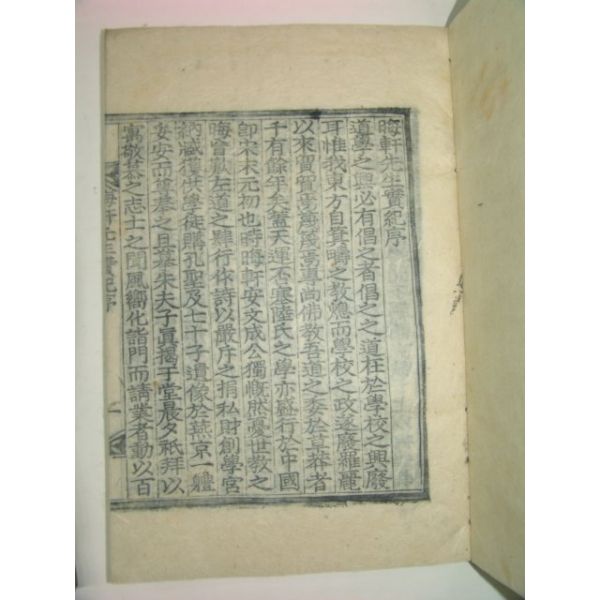 晦軒先生實紀序
道學之興必有倡之者倡之之道在於學校之興廢
耳惟我東方自箕疇之教熄而學校之政遂廢羅麗
以來貿貿焉廢廢焉專尚佛教吾道之委於草莽者
千有餘年矣蓋天運否塞陸氏之學亦盛行於中國
卽宋末元初也時晦軒安文成公獨慨然憂世教之
晦曾歎左道之肆行作詩以嚴斥之捐私財創學宮
納臧獲供學徒購孔聖及七十子遺像於燕京一軆
妥安而尊慕之且摹朱夫子眞揭于堂晨夕祇拜以
寓敬慕之志士之聞風嚮化詣門而請業者動以百
晦軒先生實紀序